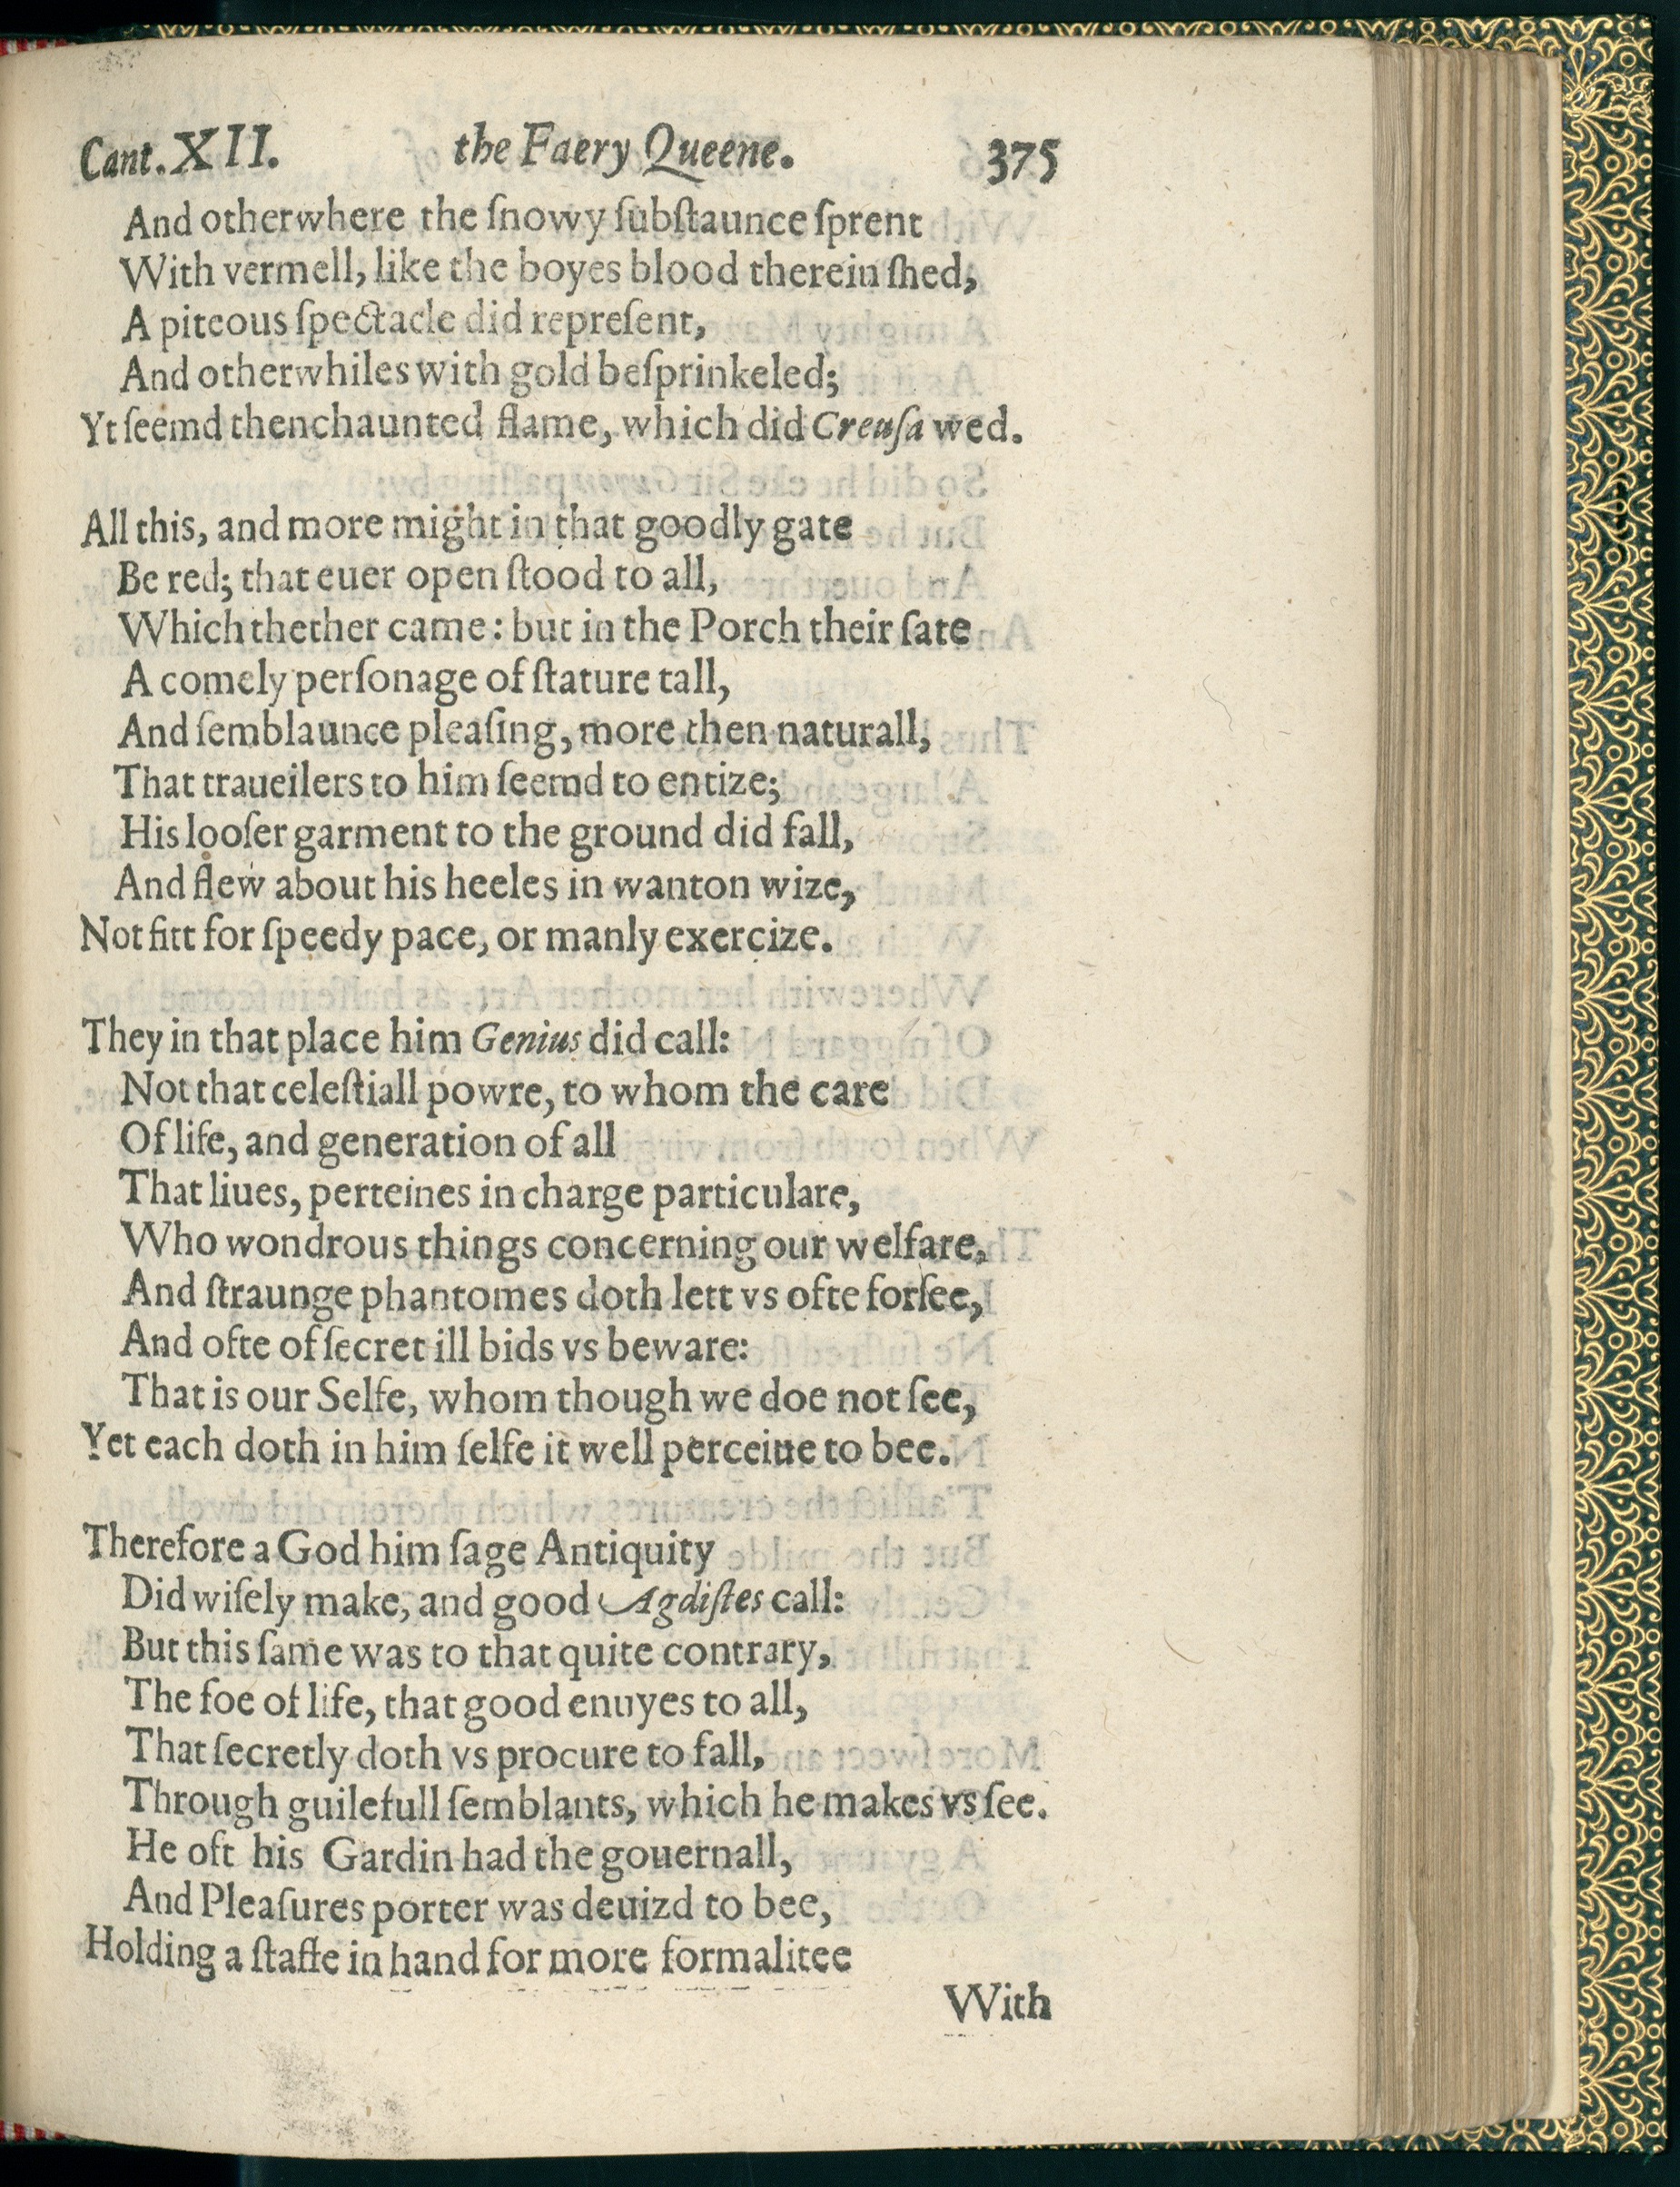 Cant. XII. the Faery Queene. 375
And otherwhere the ſnowy ſubſtaunce ſprent
With vermell, like the boyes blood therein ſhed,
A piteous ſpectacle did repreſent,
And otherwhiles with gold beſprinkeled;
Yt ſeemd thenchaunted flame, which did Creuſa wed.
All this, and more might in that goodly gate
Be red; that euer open ſtood to all,
Which thether came: but in the Porch their ſate
A comely perſonage of ſtature tall,
And ſemblaunce pleaſing, more then naturall,
That traueilers to him ſeemd to entize;
His looſer garment to the ground did fall,
And flew about his heeles in wanton wize,
Not fitt for ſpeedy pace, or manly exercize.
They in that place him Genius did call:
Not that celeſtiall powre, to whom the care
Of life, and generation of all
That liues, perteines in charge particulare,
Who wondrous things concerning our welfare,
And ſtraunge phantomes doth lett vs ofte forſee,
And ofte of ſecret ill bids vs beware:
That is our Selfe, whom though we doe not ſee,
Yet each doth in him ſelfe it well perceiue to bee.
Therefore a God him ſage Antiquity
Did wiſely make, and good Agdiſtes call:
But this ſame was to that quite contrary,
The foe of life, that good enuyes to all,
That ſecretly doth vs procure to fall,
Through guilefull ſemblants, which he makes vs ſee.
He oft his Gardin had the gouernall,
And Pleaſures porter was deuizd to bee,
Holding a ſtaffe in hand for more formalitee
With